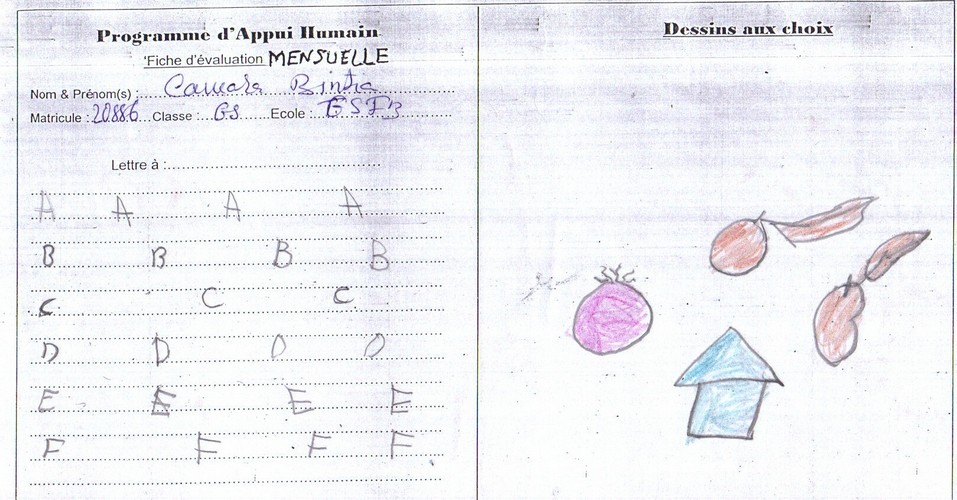 Programme d'Appui Humain
Fiche d'évaluation MENSUELLE
Nom & Prénom(s) : Camara Binta
Matricule : 20886 Classe : GS Ecole : GSFB
Lettre à :
A A A A
B B B B
C C C
D D D D
E E E E
F F F F
Dessins aux choix